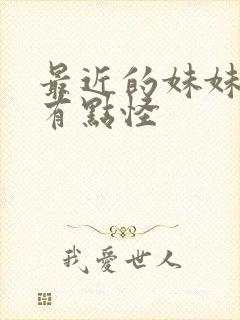 最近的妹妹
有點怪
我愛世人